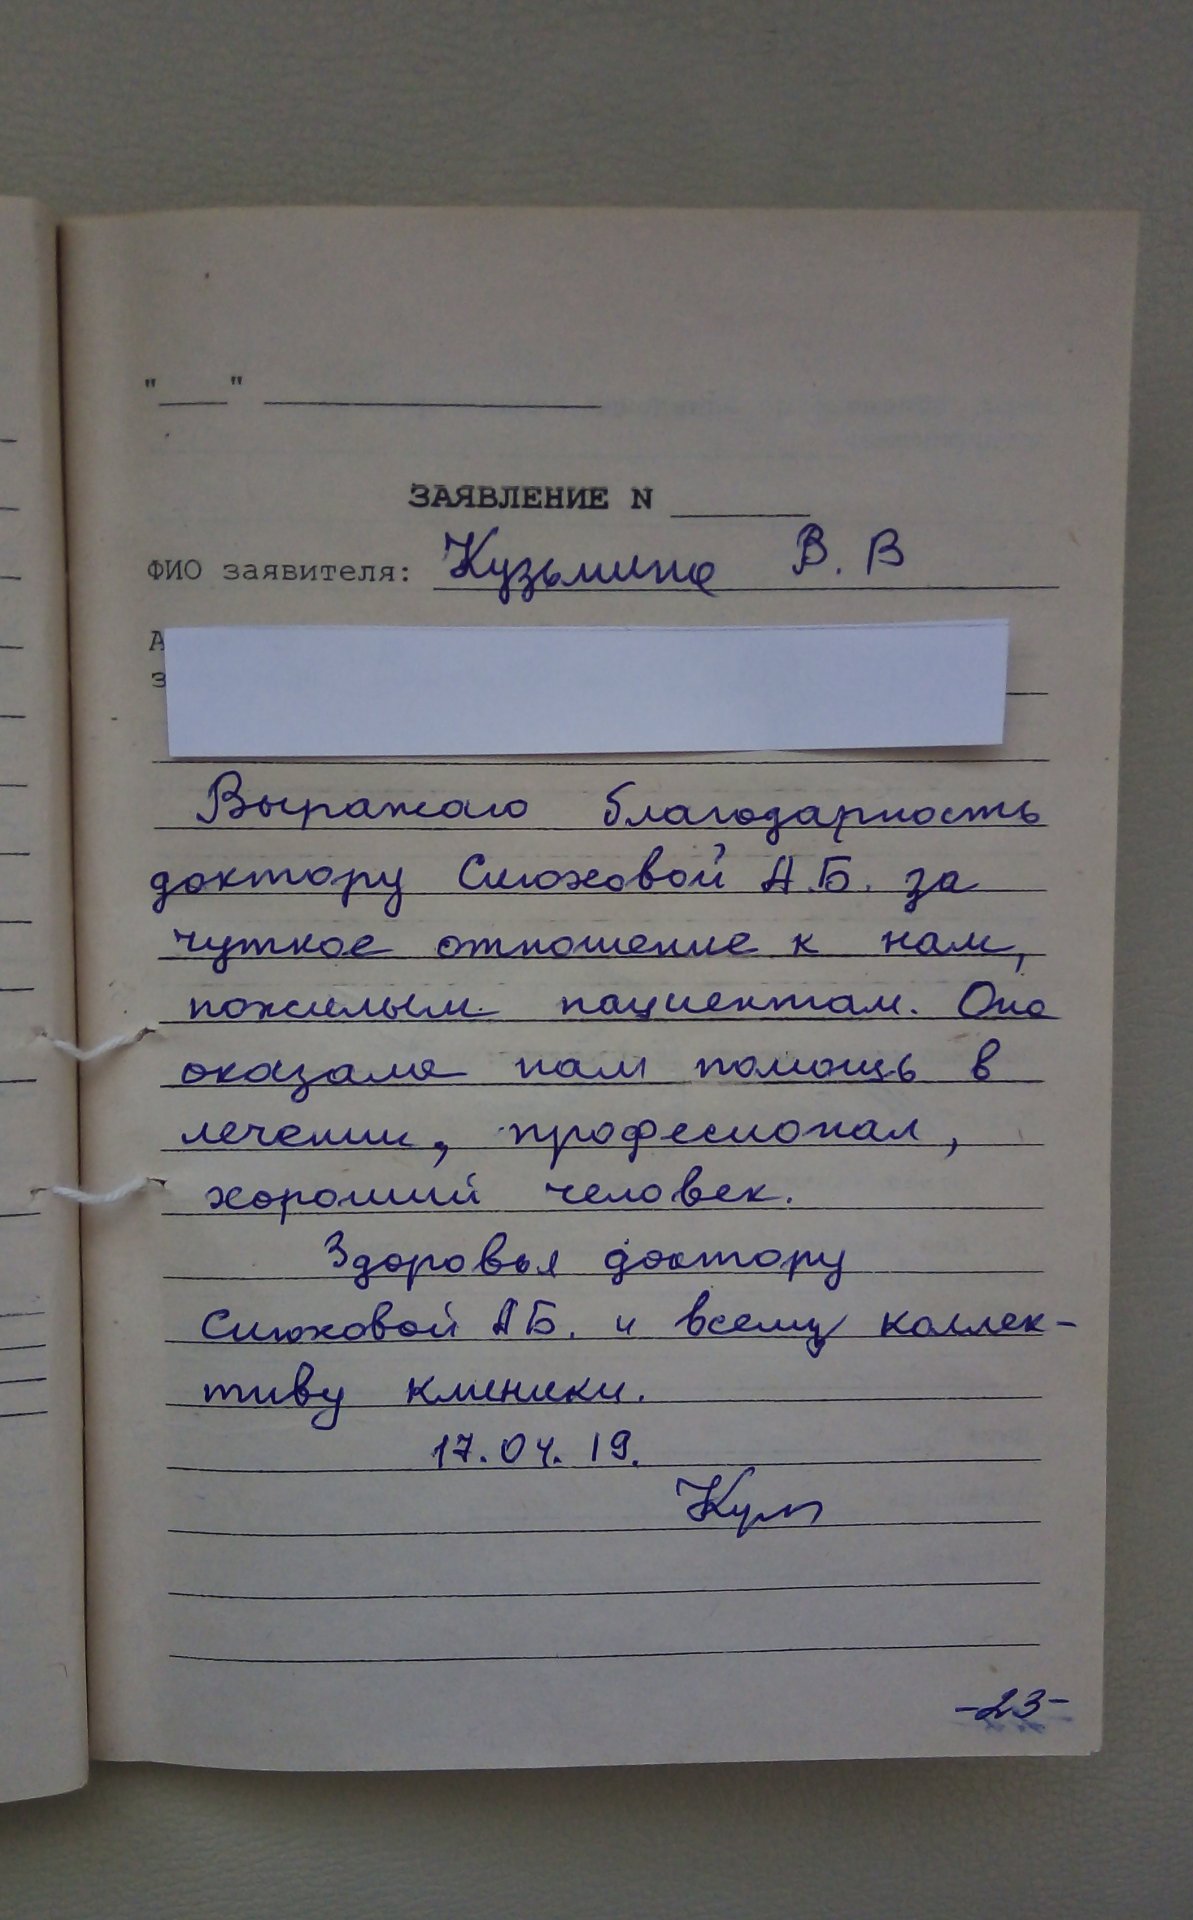 "____" ____________________
ЗАЯВЛЕНИЕ N ________
ФИО заявителя: Кузьмина В. В
А
з
Выражаю благодарность
доктору Слюховой А.Б. за
чуткое отношение к нам,
пожилым пациентам. Она
оказала нам помощь в
лечении, професионал,
хороший человек.
Здоровья доктору
Слюховой А Б. и всему коллек-
тиву клиники.
17.04.19.
-23-